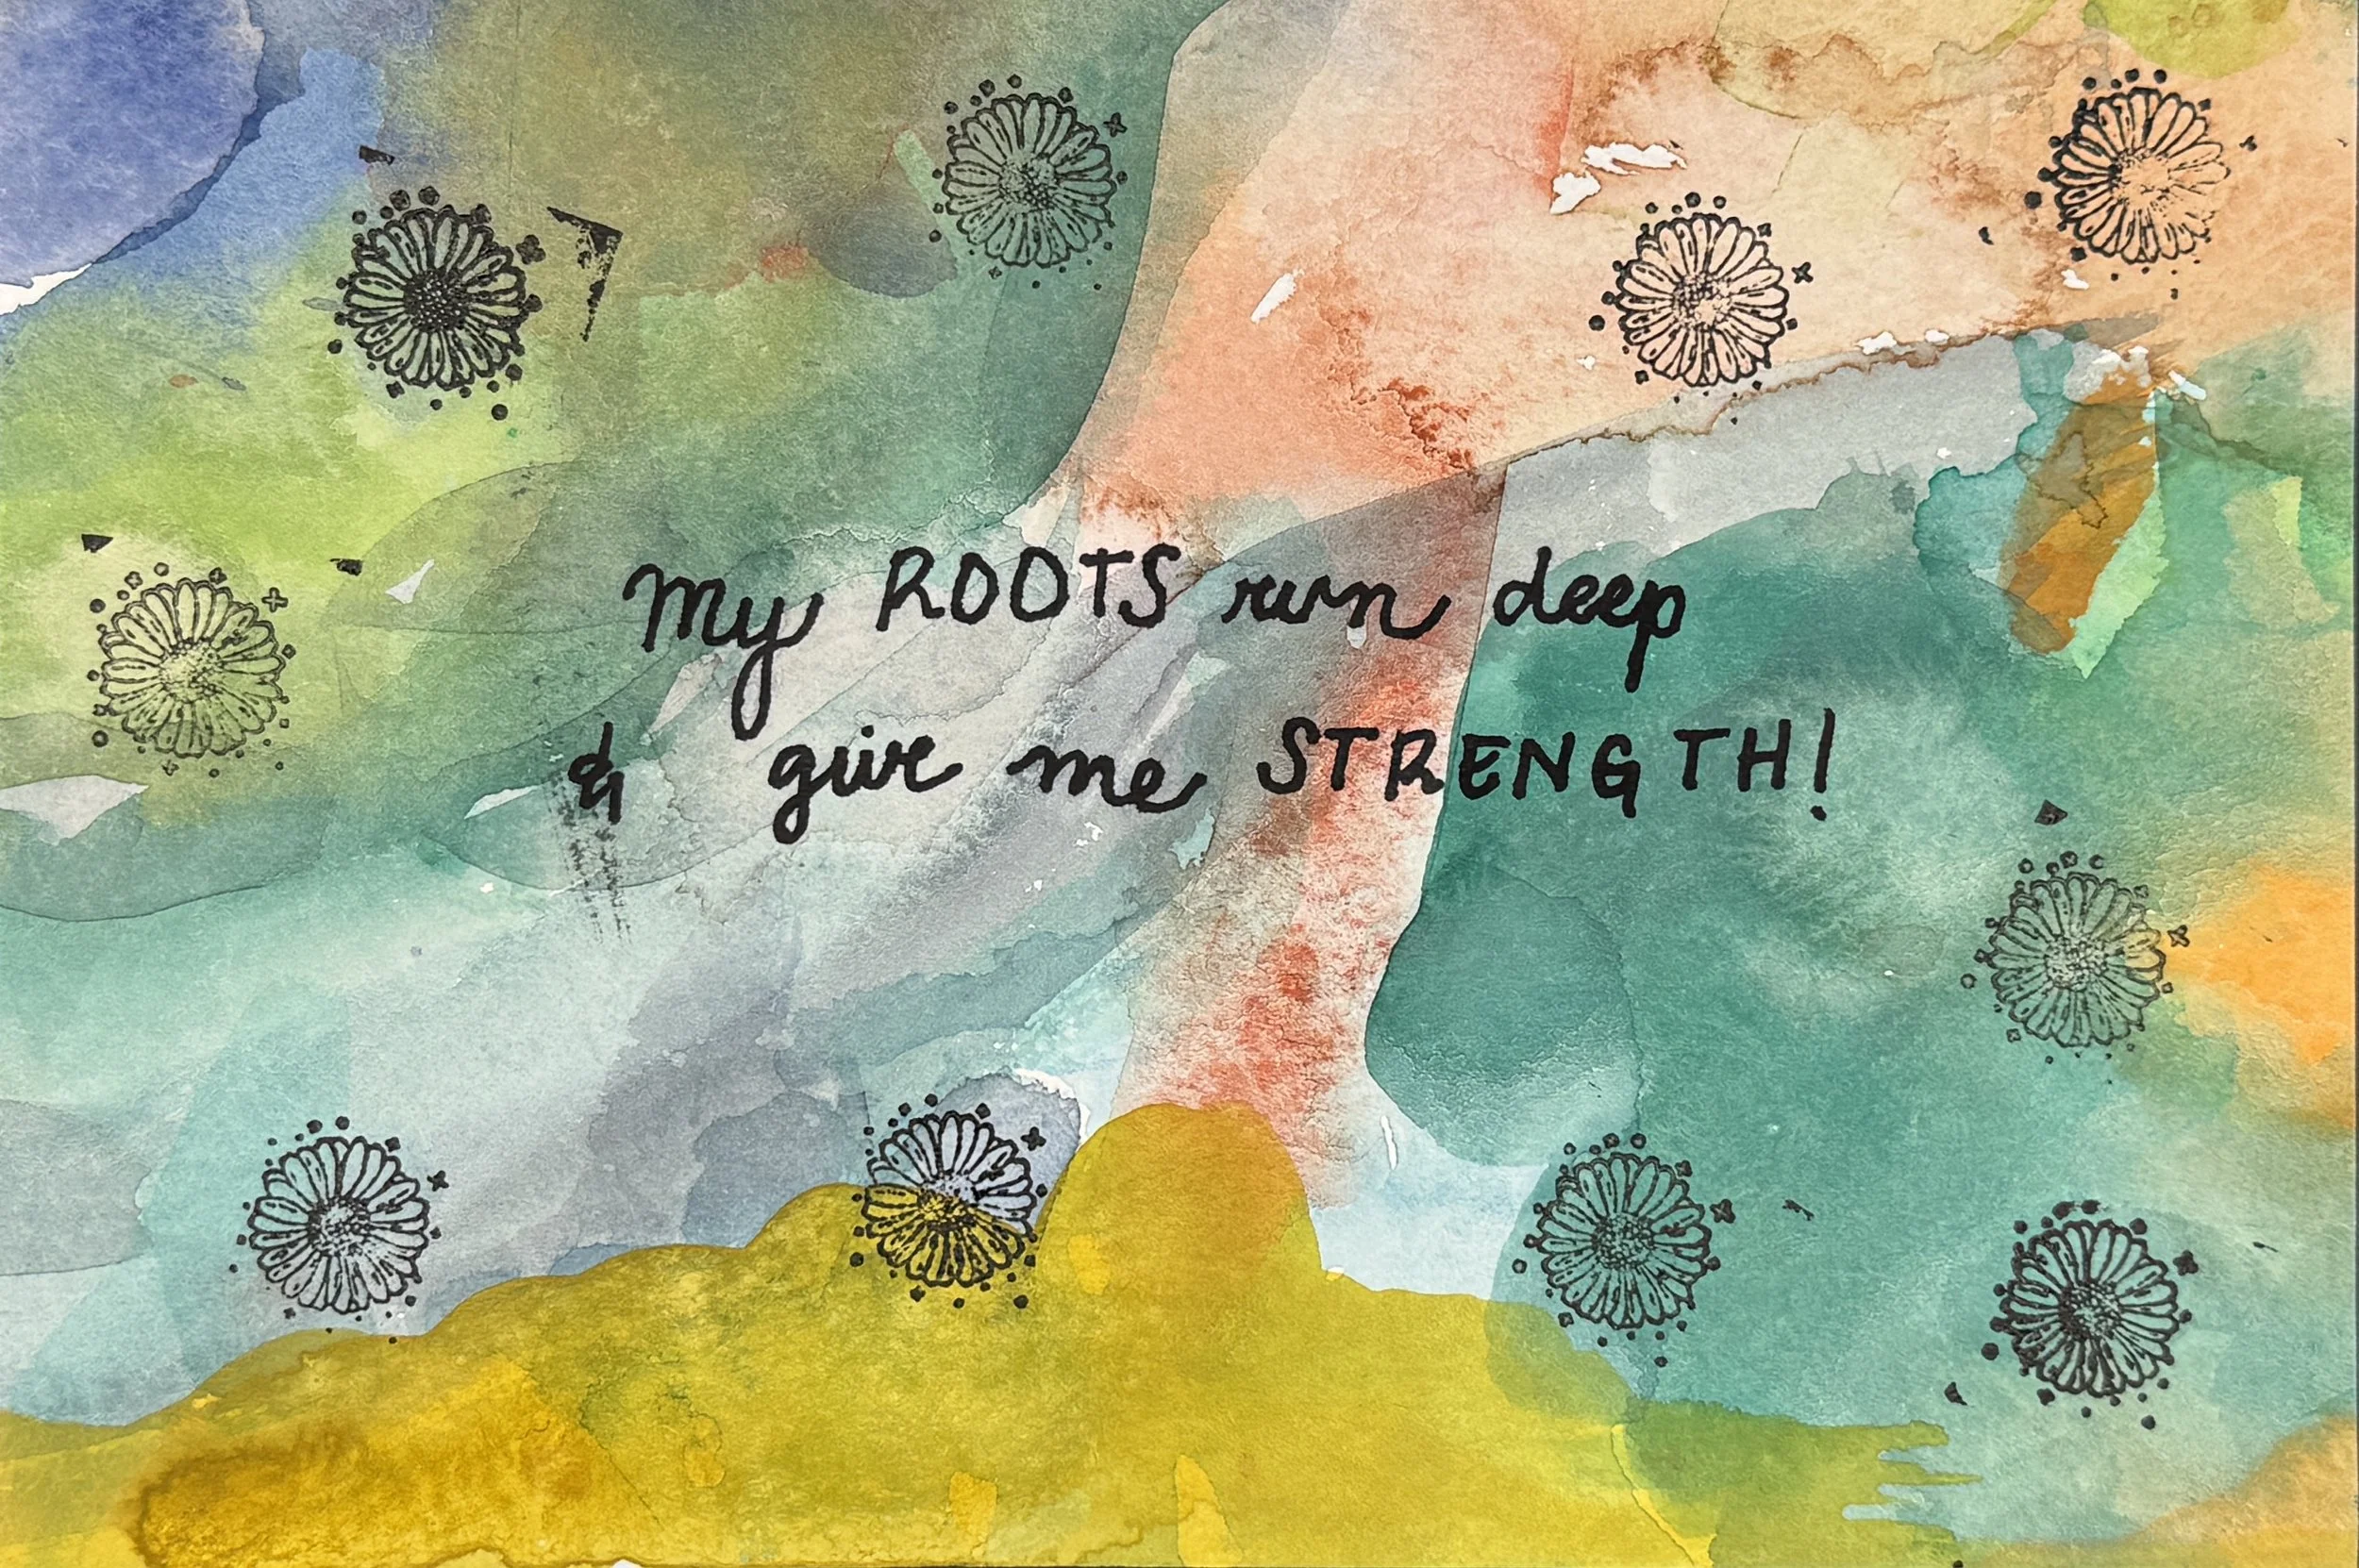 My ROOTS run deep
& give me STRENGTH!